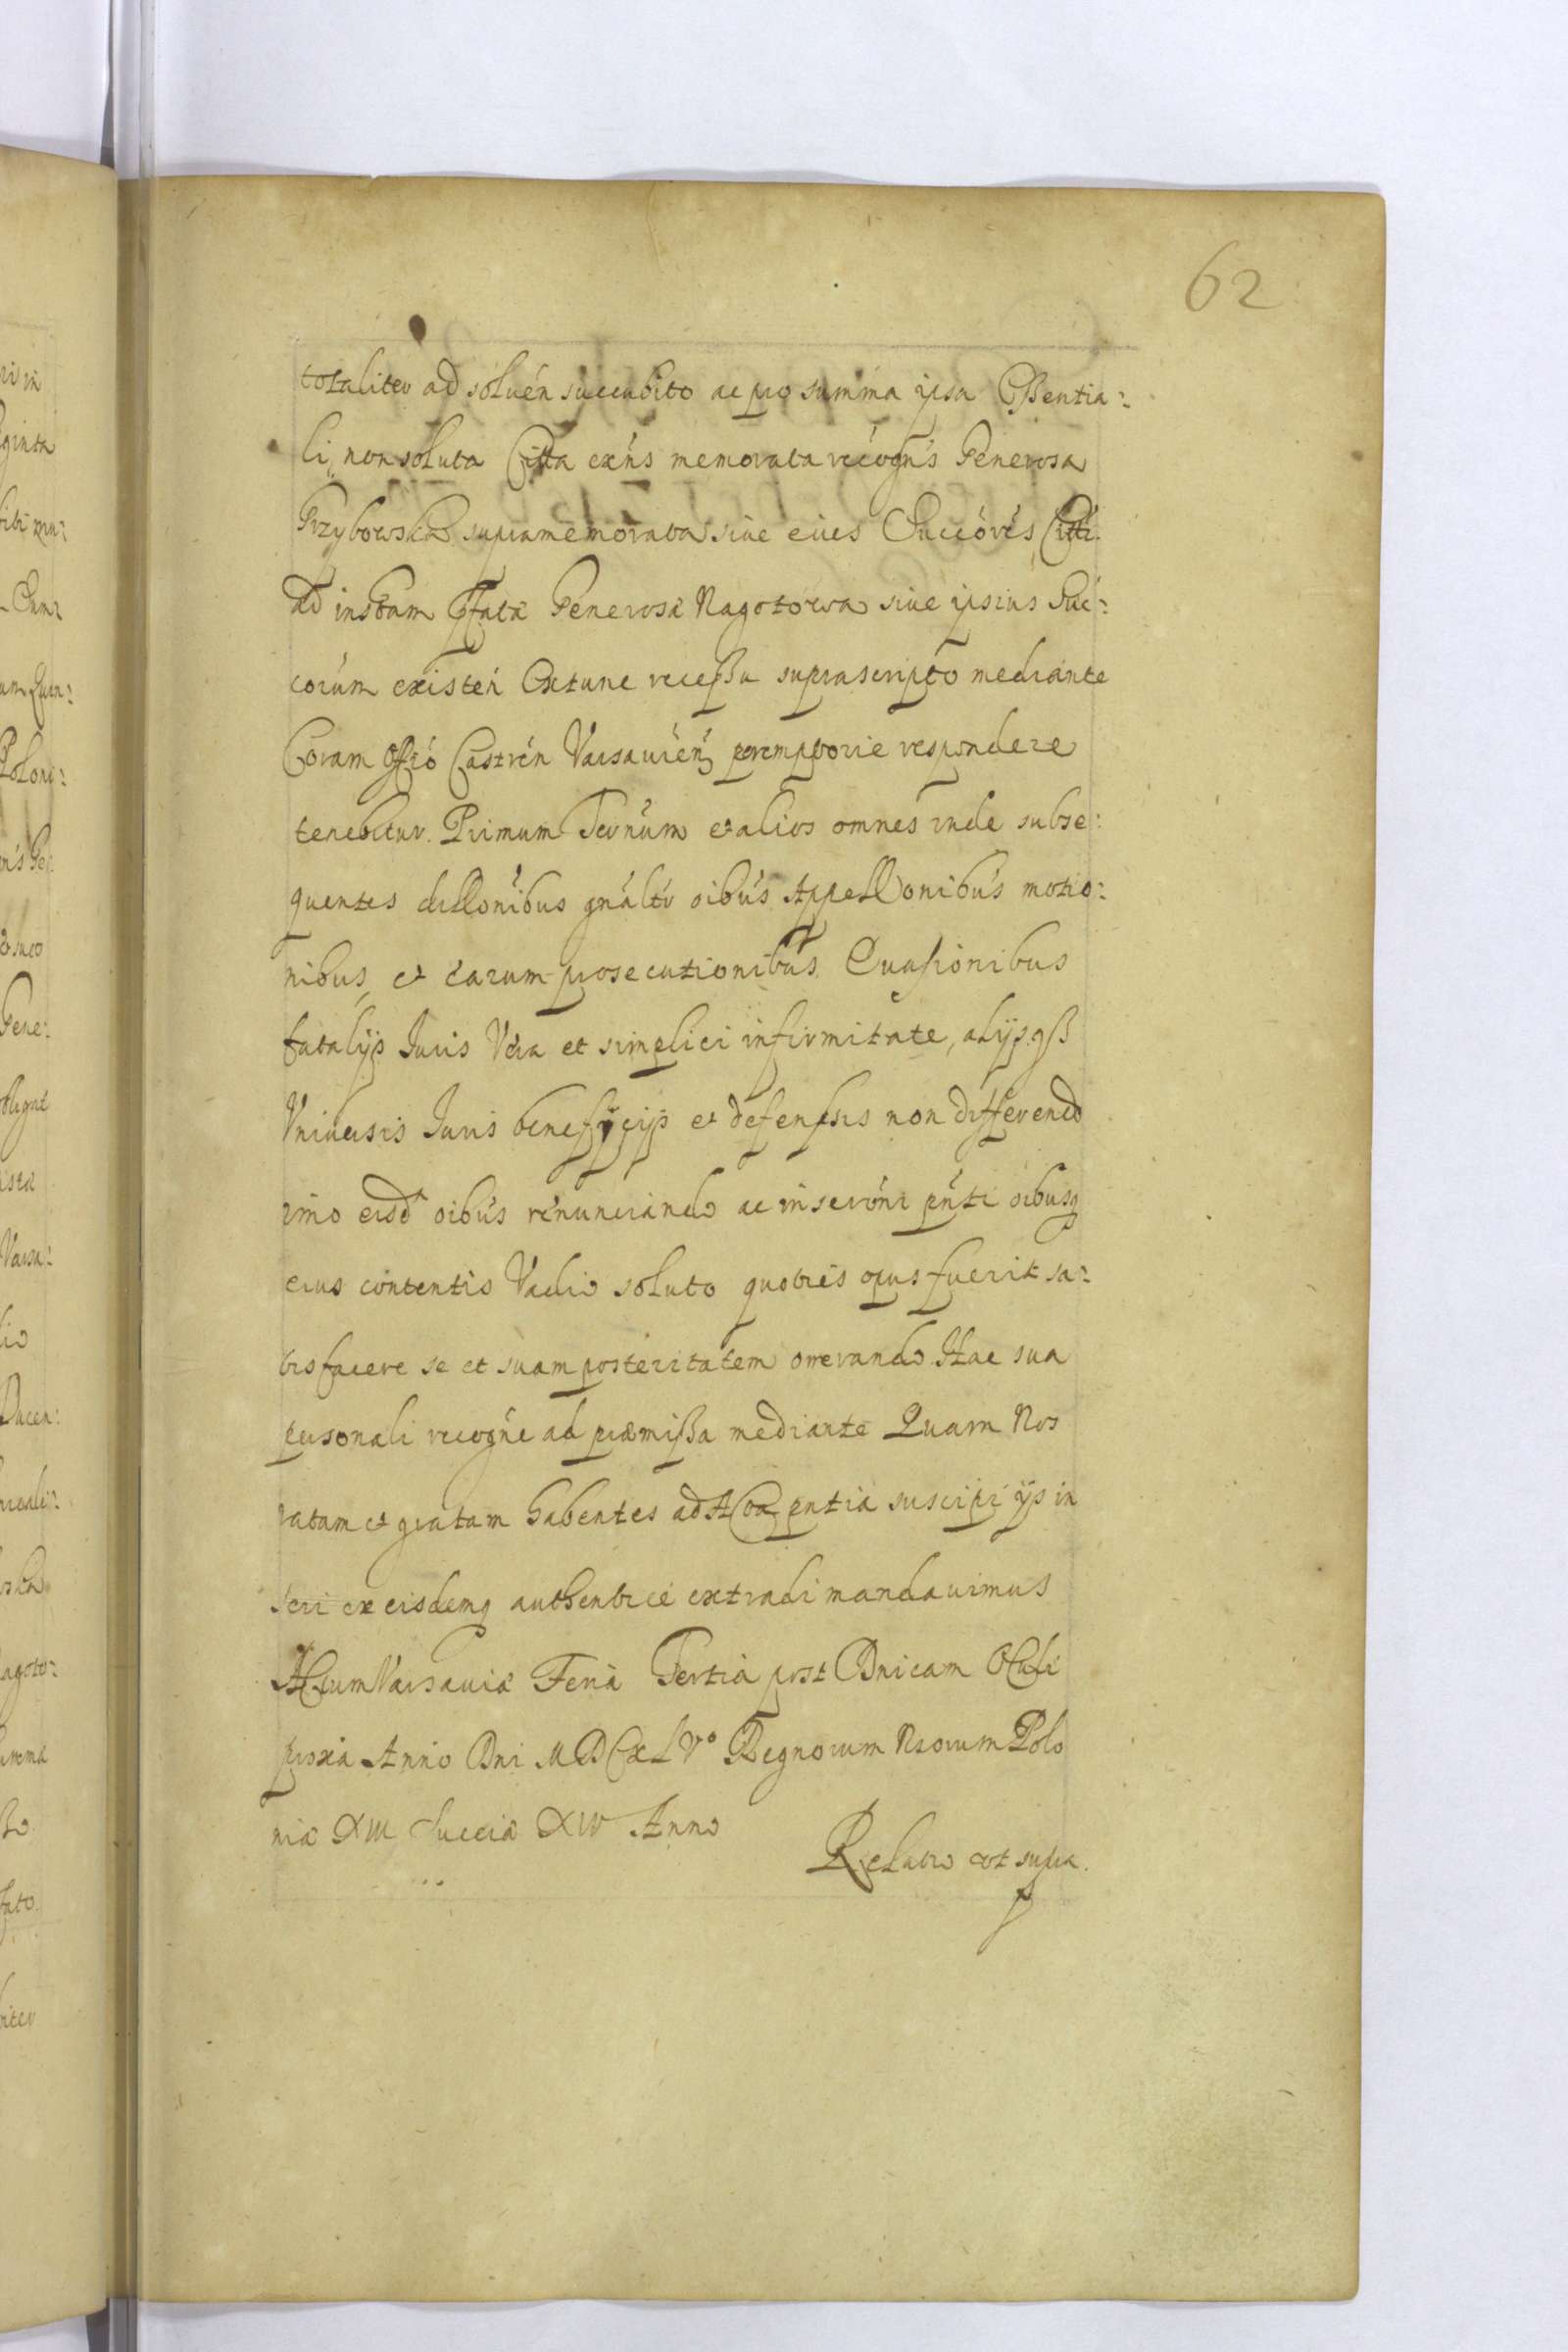 62
totaliter ad soluén succubito ac pro summa ipsa Essentia:
li, non soluta Citta exńs memorata recogńs Generosa
Przyborska supramemorata siue eius Succórés Citti
ad instam Pfatæ Generosæ Nagotowa siue ipsius Suc:
corúm existeń Extunc recessu suprascripto mediante
Coram Offió Castrén Varsauień peremptorie respondere
tenebitur. Primum Ternúm et alios omnes inde subse:
quentes dillónibus gnáltr oibús Appellonibús motio:
nibus, et earum prosecutionibús Euasionibus
fatalijs Iuris Vera et simplici infirmitate, alijsqß
Vniuersis Iuris beneficijs et defensis non differendo
imo eisd oibús renunciando ac inseróni pńti oibusq
eius contentis Vadio soluto quotiés opus fuerit sa:
tisfacere se et suam posteritatem onerando. Hac sua
personali recogńe ad præmissa mediante Quam Nos
ratam et gratam habentes ad Acta pntia suscipi ijs in
seri ex eisdemq authenticé extradi mandauimus
Actum Varsauiæ Feria Tertia post Dnicam Oculi
proxia Anno Dni MDCXLVº Regnorum Nrorum Polo
niæ XIII Sueciæ XIV Anno
Relatio vt supra.